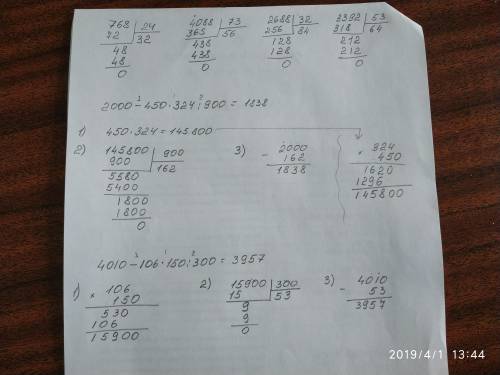 768 | 24
72 | 32
48
48
0
4088 | 73
365 | 56
438
438
0
2688 | 32
256 | 84
128
128
0
3392 | 53
318 | 64
212
212
0
2000 - 450 · 324 : 900 = 1838
1) 450 · 324 = 145800
2) 145800 | 900
900 | 162
5580
5400
1800
1800
0
3) - 2000
162
1838
× 324
450
1620
1296
145800
4010 - 106 · 150 : 300 = 3957
1) × 106
150
530
106
15900
2) 15900 | 300
15 | 53
9
9
0
3) - 4010
53
3957
2019/4/1 13:44